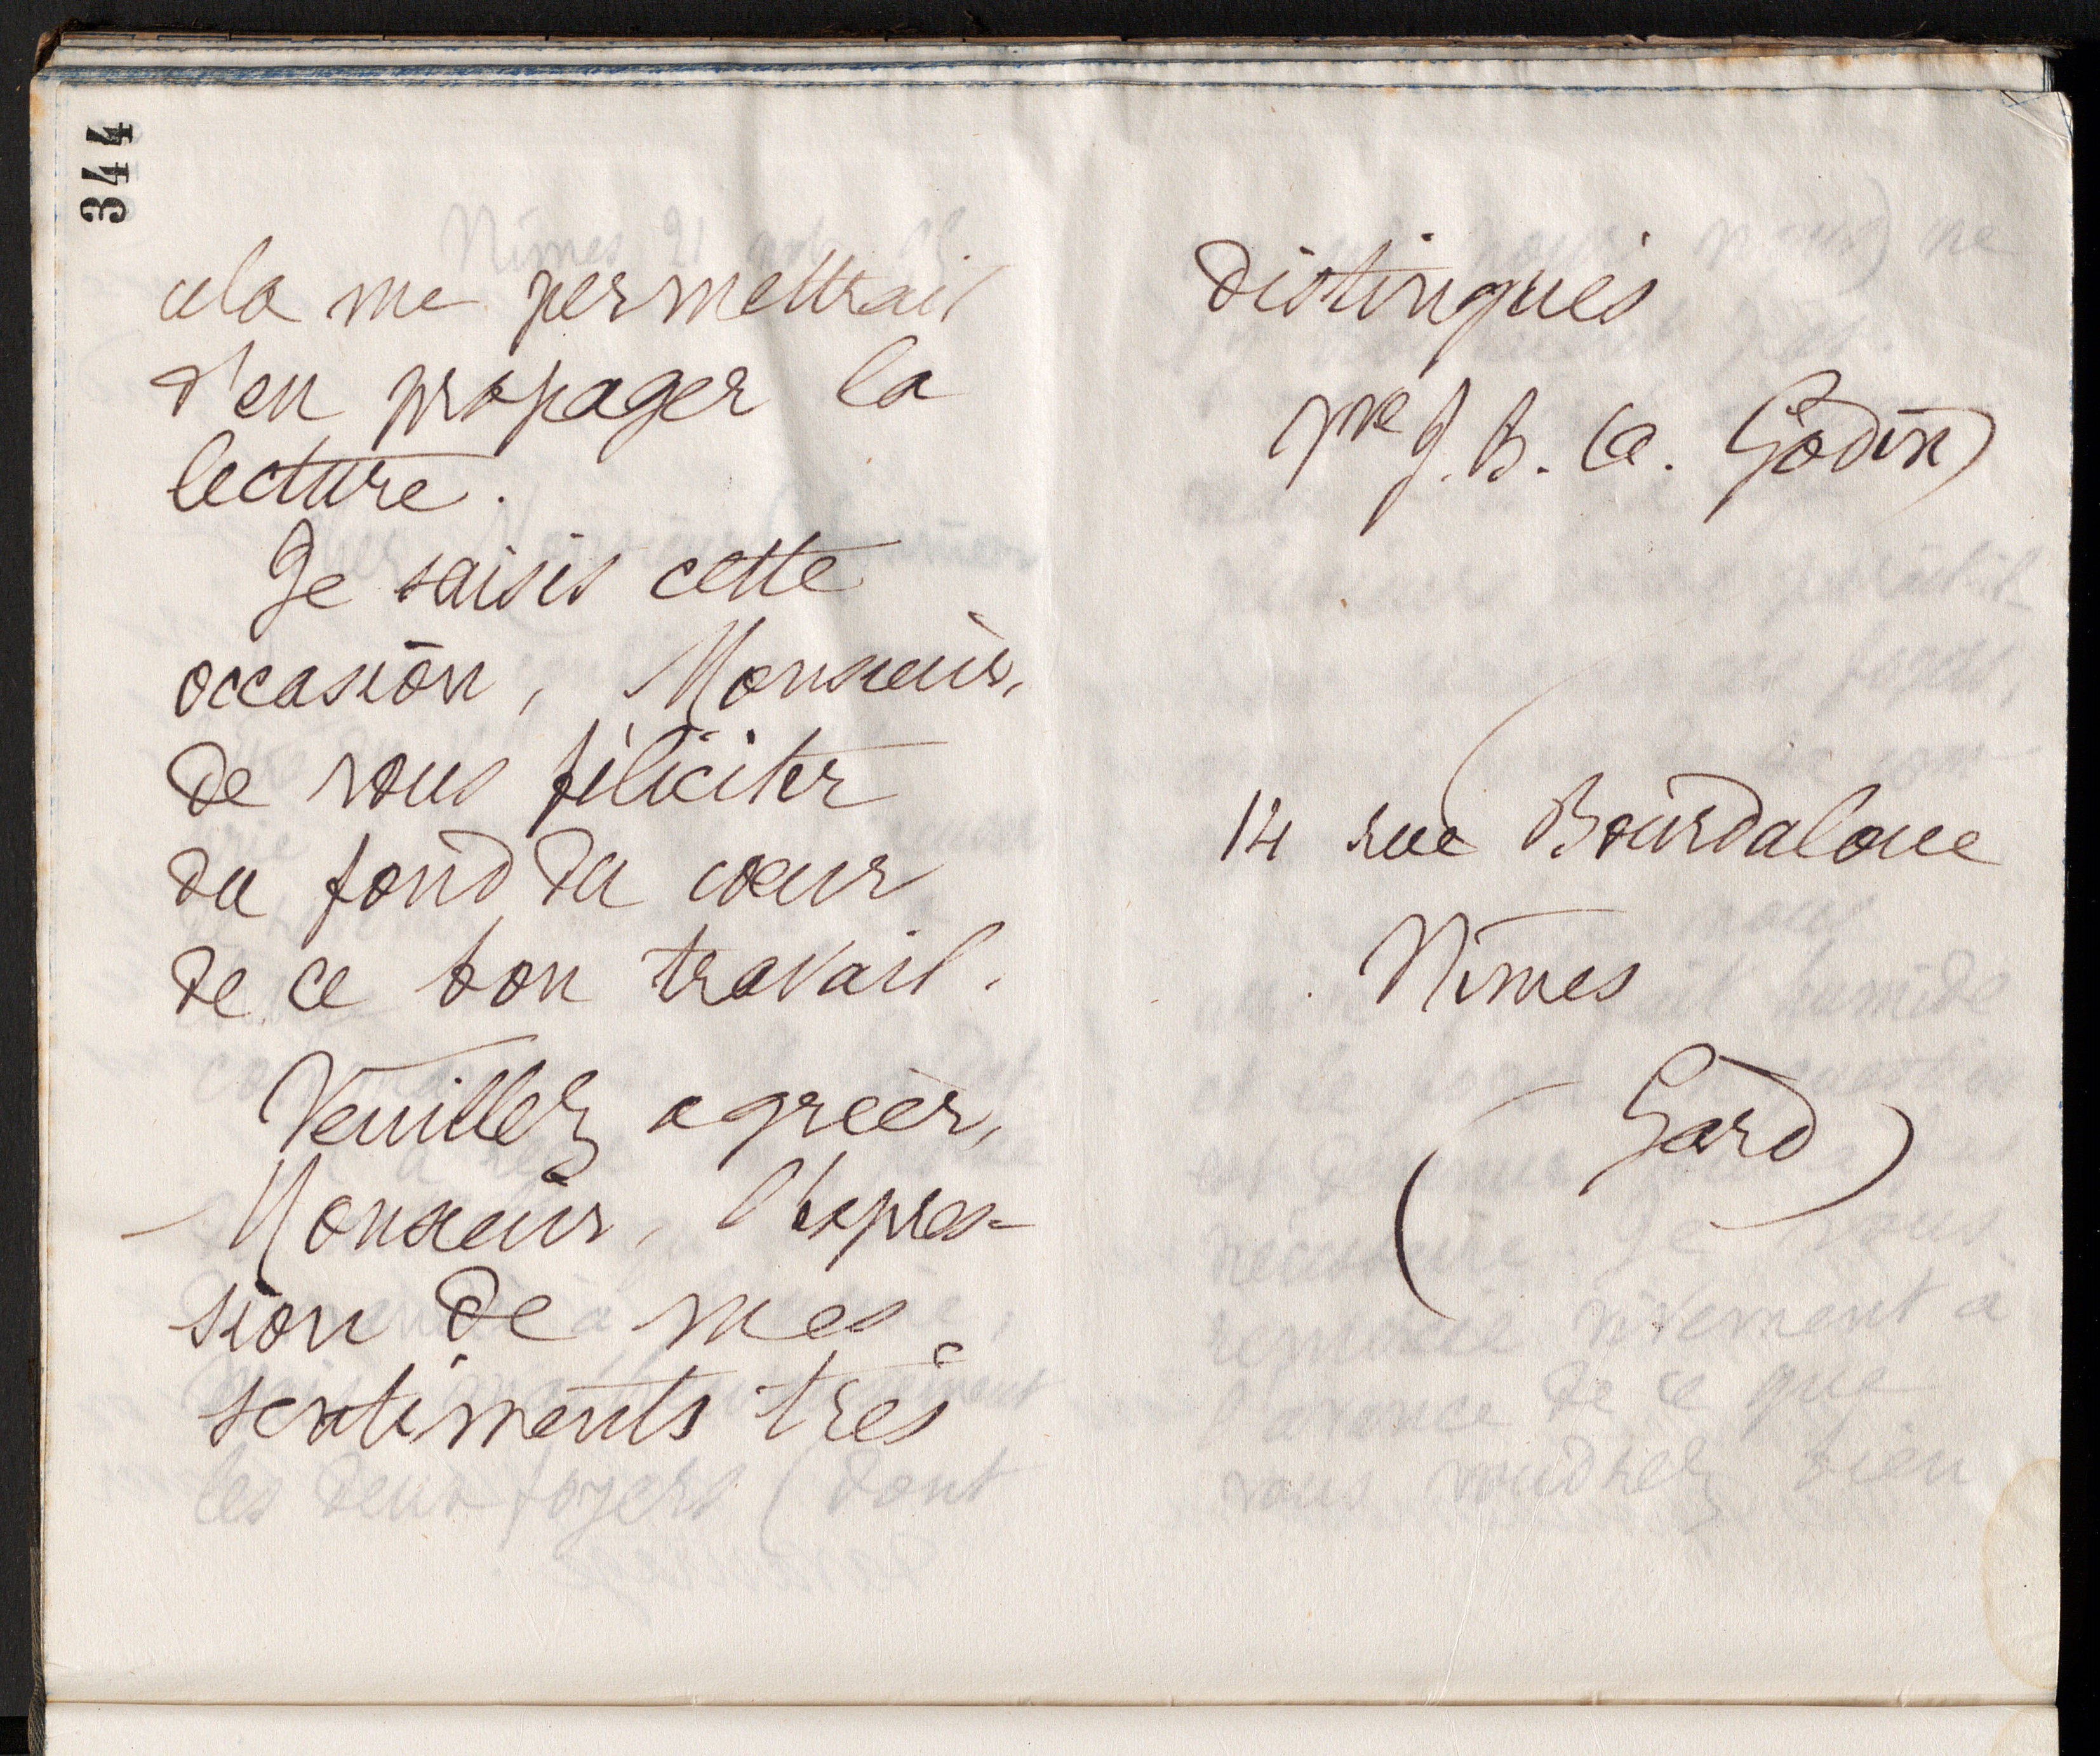 344
cela me permettrait
d'en propager la
lecture.
Je saisis cette
occasion, Monsieur,
de vous féliciter
du fond du cœur
de ce bon travail.
Veuillez agréer,
Monsieur, l'expres-
sion de mes
sentiments très
distingués
Vve J. B. A. Godin
14 rue Bourdaloue
Nîmes
(Gard)